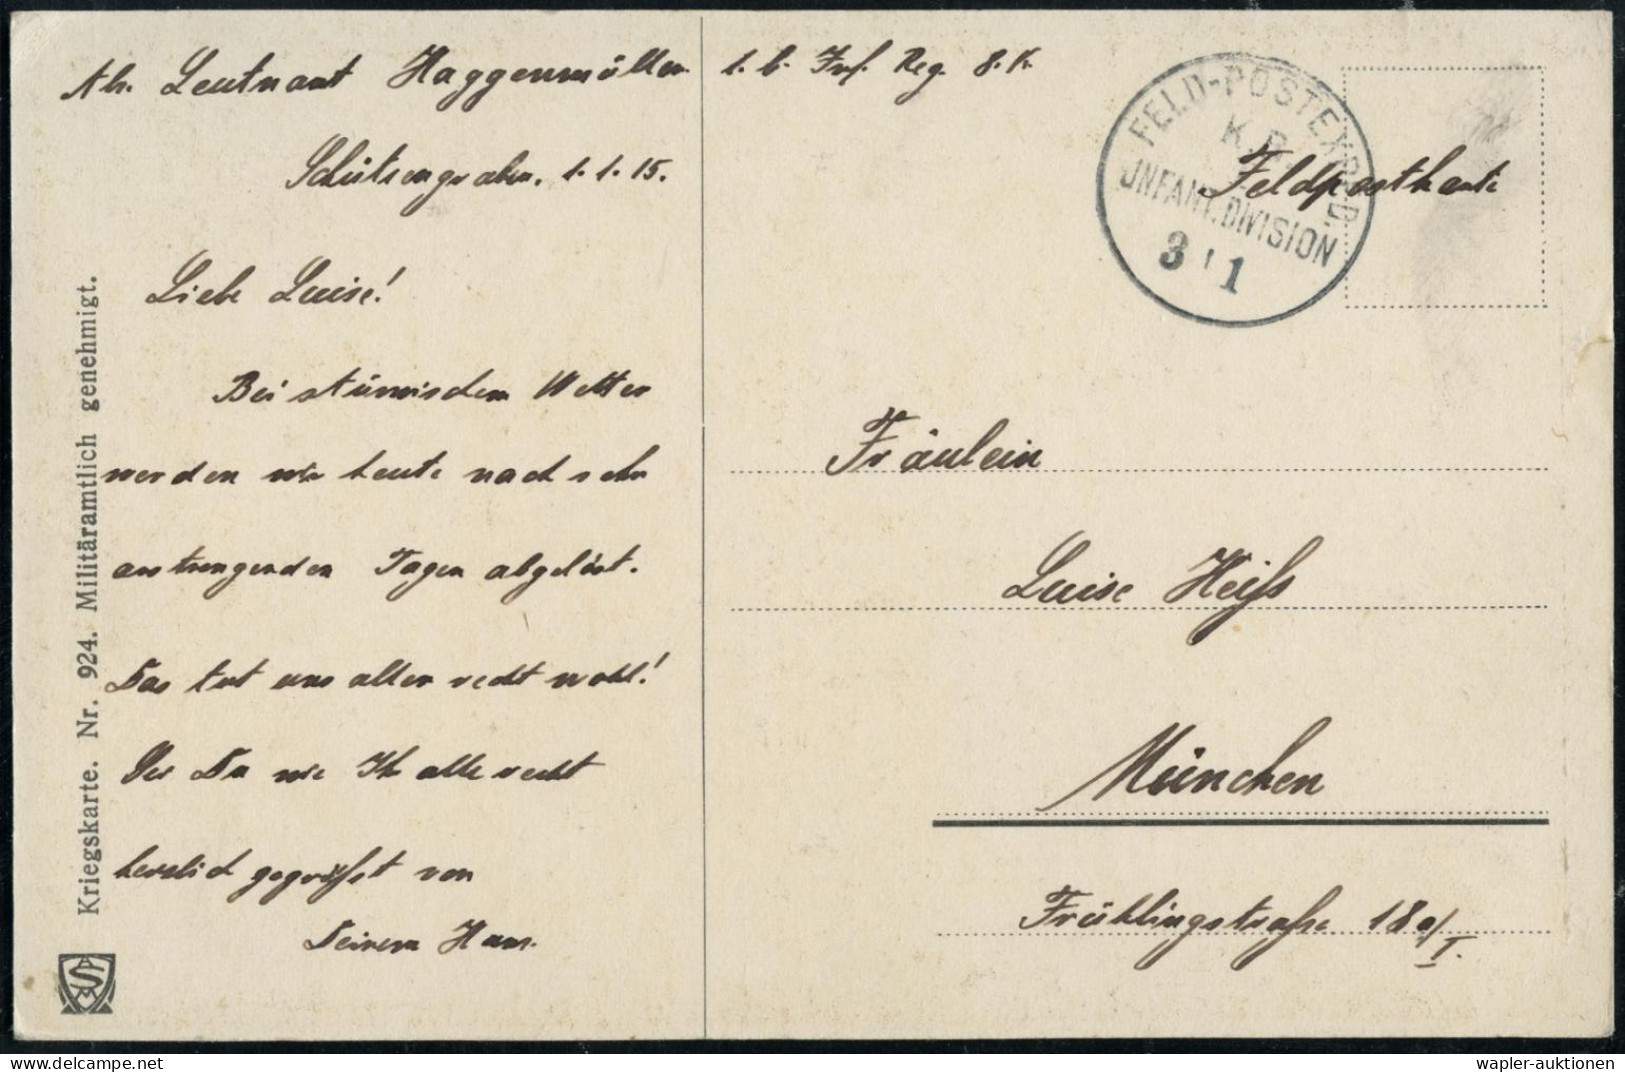 Abs. Leutnant Haggenmüller 1. b. Inf. Reg. 8. K.
Schützengraben, 1.1.15.
Liebe Luise!
Bei stürmischem Wetter
werden wir heute nach sehr
anstrengenden Tagen abgelöst.
Das tut uns allen recht wohl!
Sei Du wie Ihr alle recht
herzlich gegrüßt von
Deinem Hans.
Kriegskarte. Nr. 924. Militäramtlich genehmigt.
FELD-POSTEXPED.
K.B.
INFANT.DIVISION
3 1
Feldpostkarte
Fräulein
Luise Heiß
München
Frühlingstraße 18a/I.
www.delcampe.net
wapler-auktionen